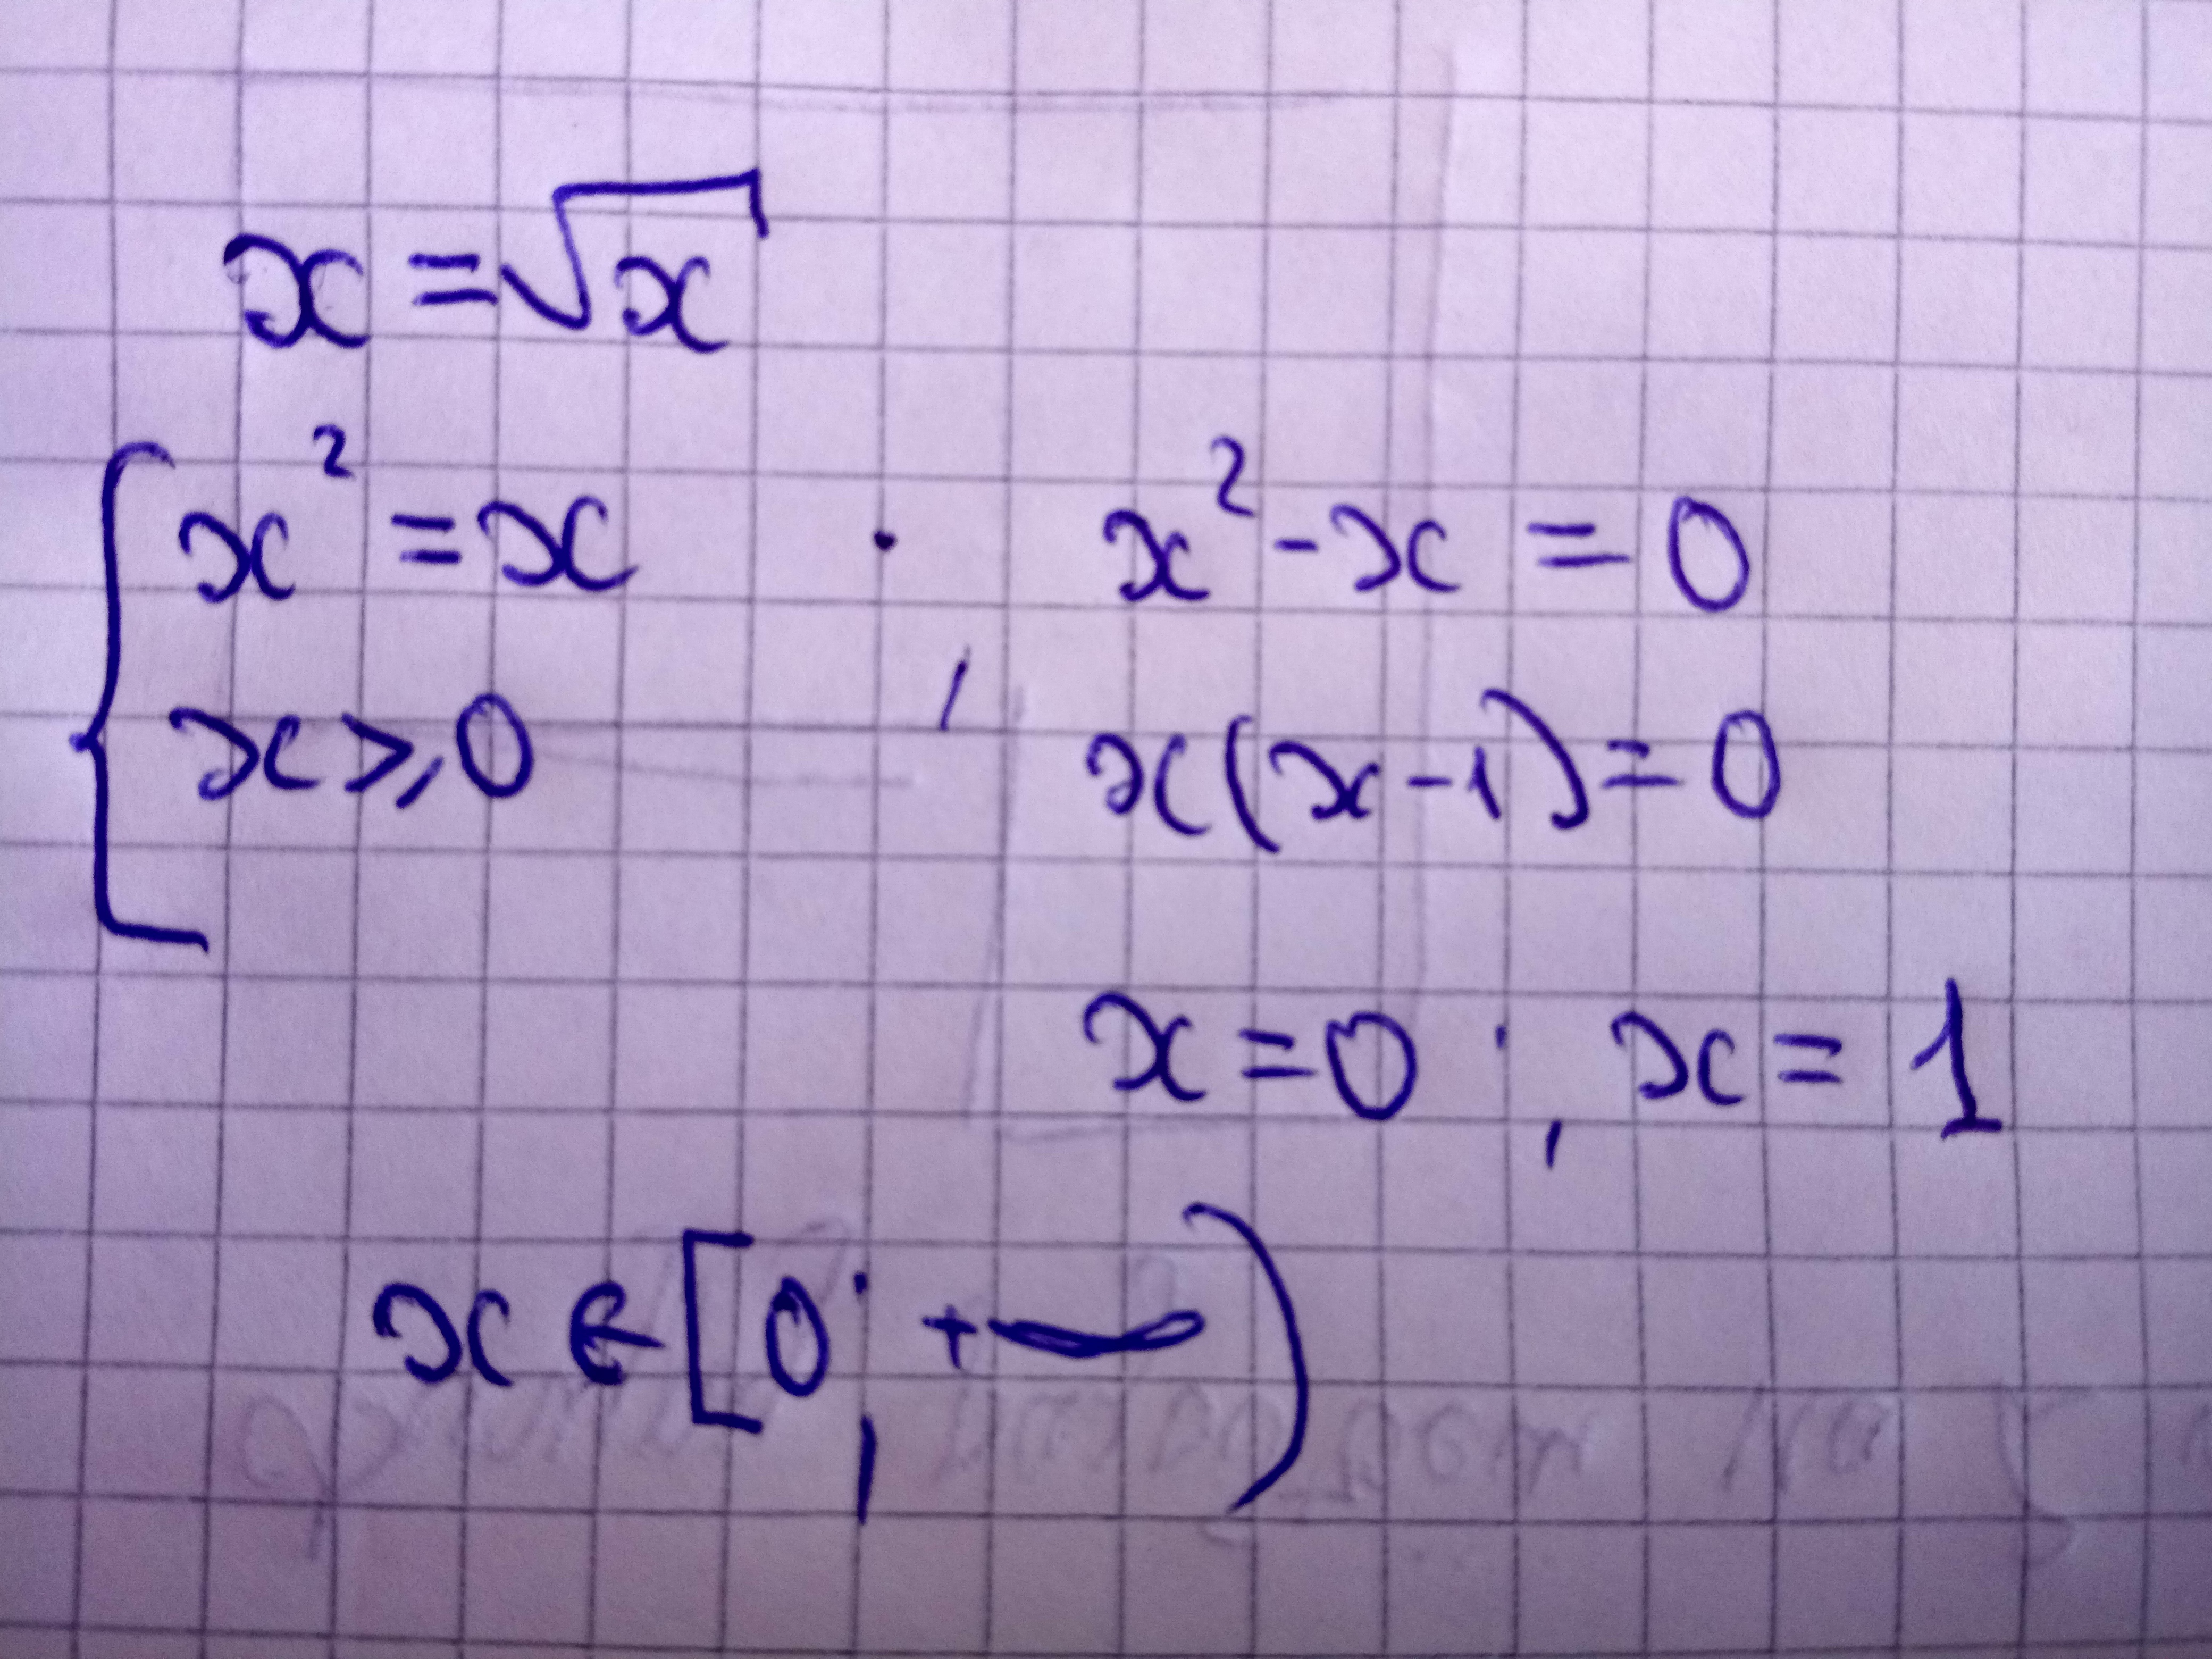 x = √x
{ x² = x ; x² - x = 0
x ⩾ 0 x(x-1) = 0
x = 0 ; x = 1
x ∈ [0 ; +∞)